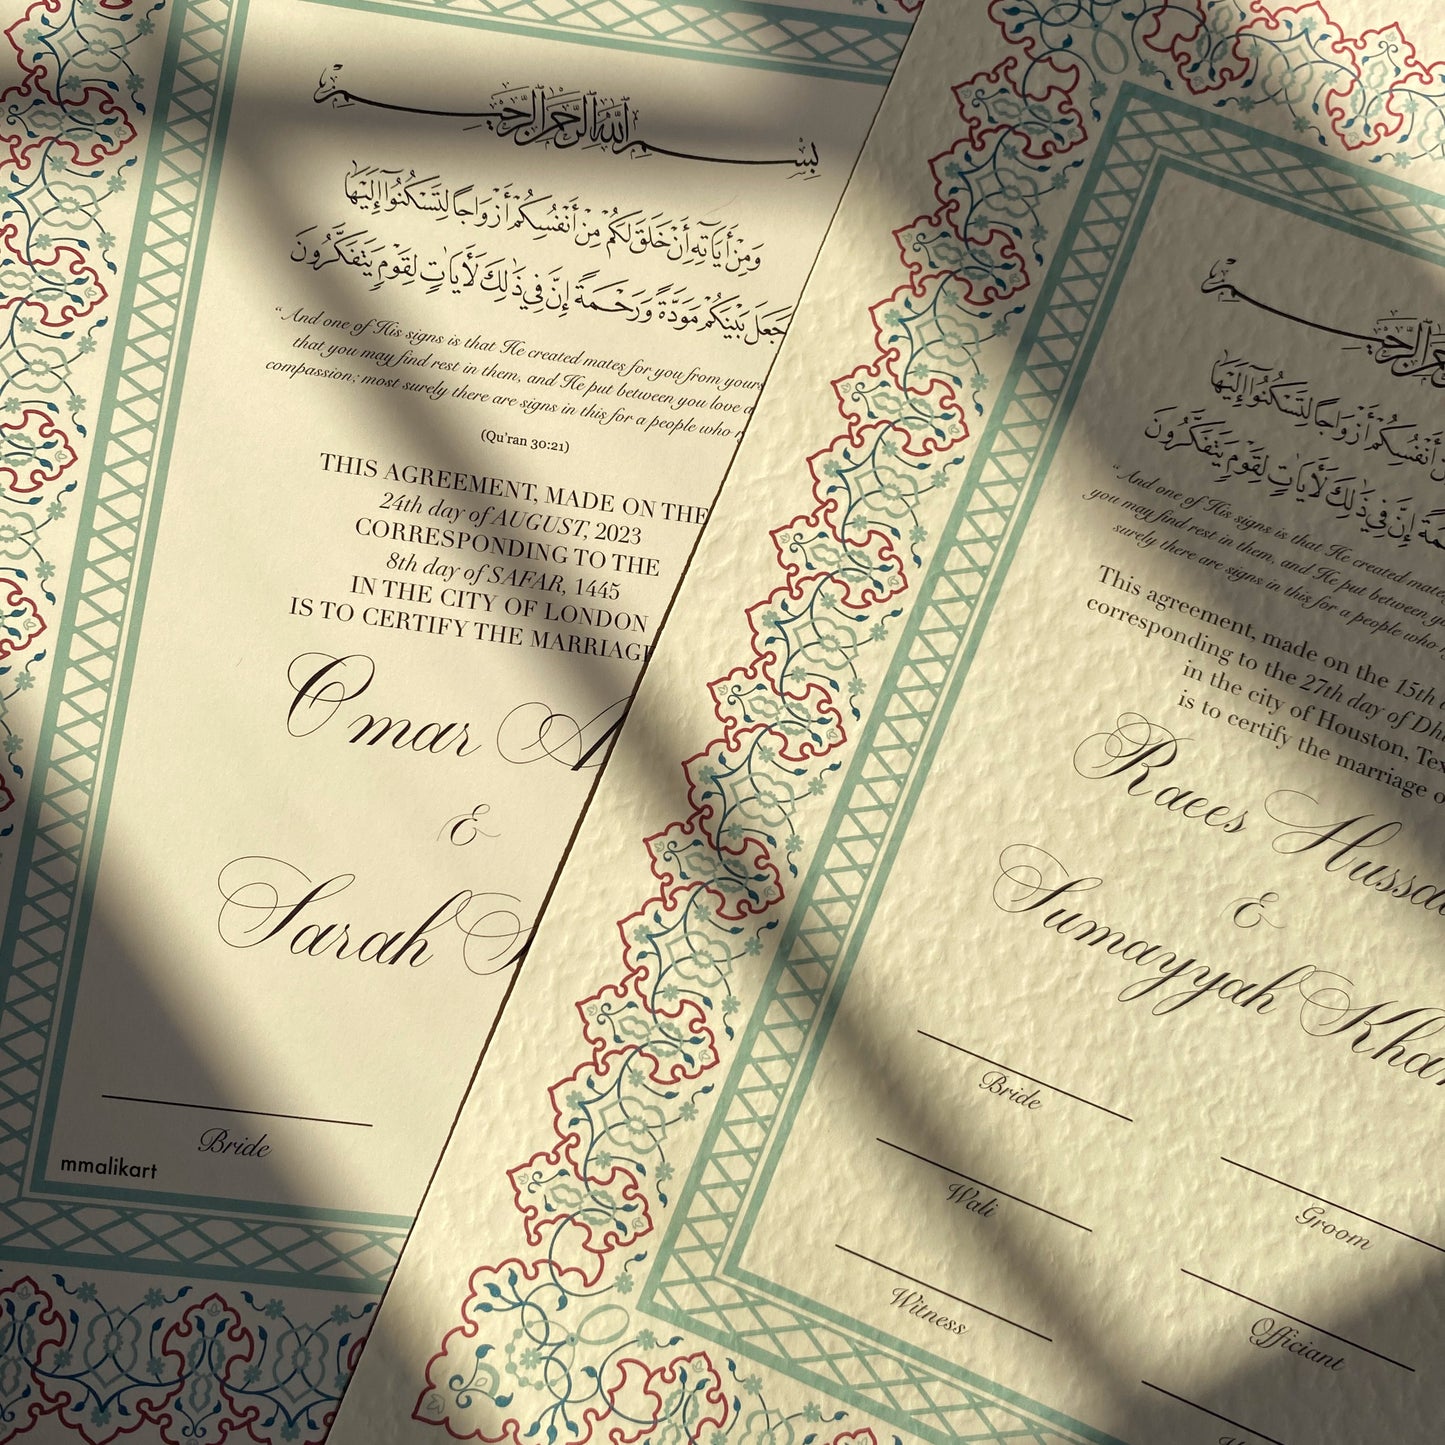 بِسْمِ اللهِ الرَّحْمٰنِ الرَّحِيْمِ
وَمِنْ أَيَاتِهِ أَنْ خَلَقَ لَكُمْ مِنْ أَنْفُسِكُمْ أَزْوَاجًا لِتَسْكُنُوا إِلَيْهَا
جَعَلَ بَيْنَكُمْ مَوَدَّةً وَرَحْمَةً إِنَّ فِي ذَٰلِكَ لَأَيَاتٍ لِقَوْمٍ يَتَفَكَّرُونَ
“And one of His signs is that He created mates for you from your
that you may find rest in them, and He put between you love
compassion; most surely there are signs in this for a people who
(Qu'ran 30:21)
THIS AGREEMENT, MADE ON THE
24th day of AUGUST, 2023
CORRESPONDING TO THE
8th day of SAFAR, 1445
IN THE CITY OF LONDON
IS TO CERTIFY THE MARRIAGE
Omar A
&
Sarah S
Bride
mmalikart
الرَّحِيْمِ
أَنْفُسِكُمْ أَزْوَاجًا لِتَسْكُنُوا إِلَيْهَا
إِنَّ فِي ذَٰلِكَ لَأَيَاتٍ لِقَوْمٍ يَتَفَكَّرُونَ
“And one of His signs is that He created mates
you may find rest in them, and He put between
surely there are signs in this for a people who
This agreement, made on the 15th
corresponding to the 27th day of Dhu
in the city of Houston, Tex
is to certify the marriage o
Raees Hussa
&
Sumayyah Khan
Bride
Groom
Wali
Officiant
Witness